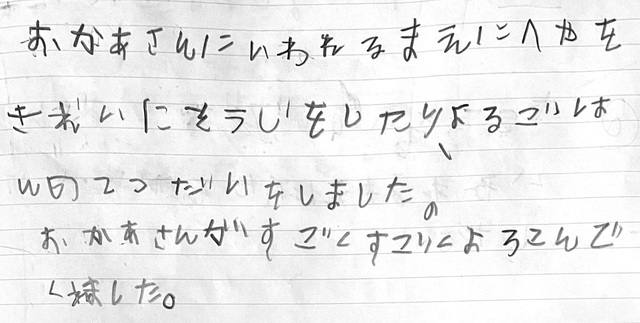 おかあさんにいわれるまえにへやを
きれいにそうじをしたり、よるごは
んのてつだいをしました。
おかあさんがすごくすごくよろこんで
くました。